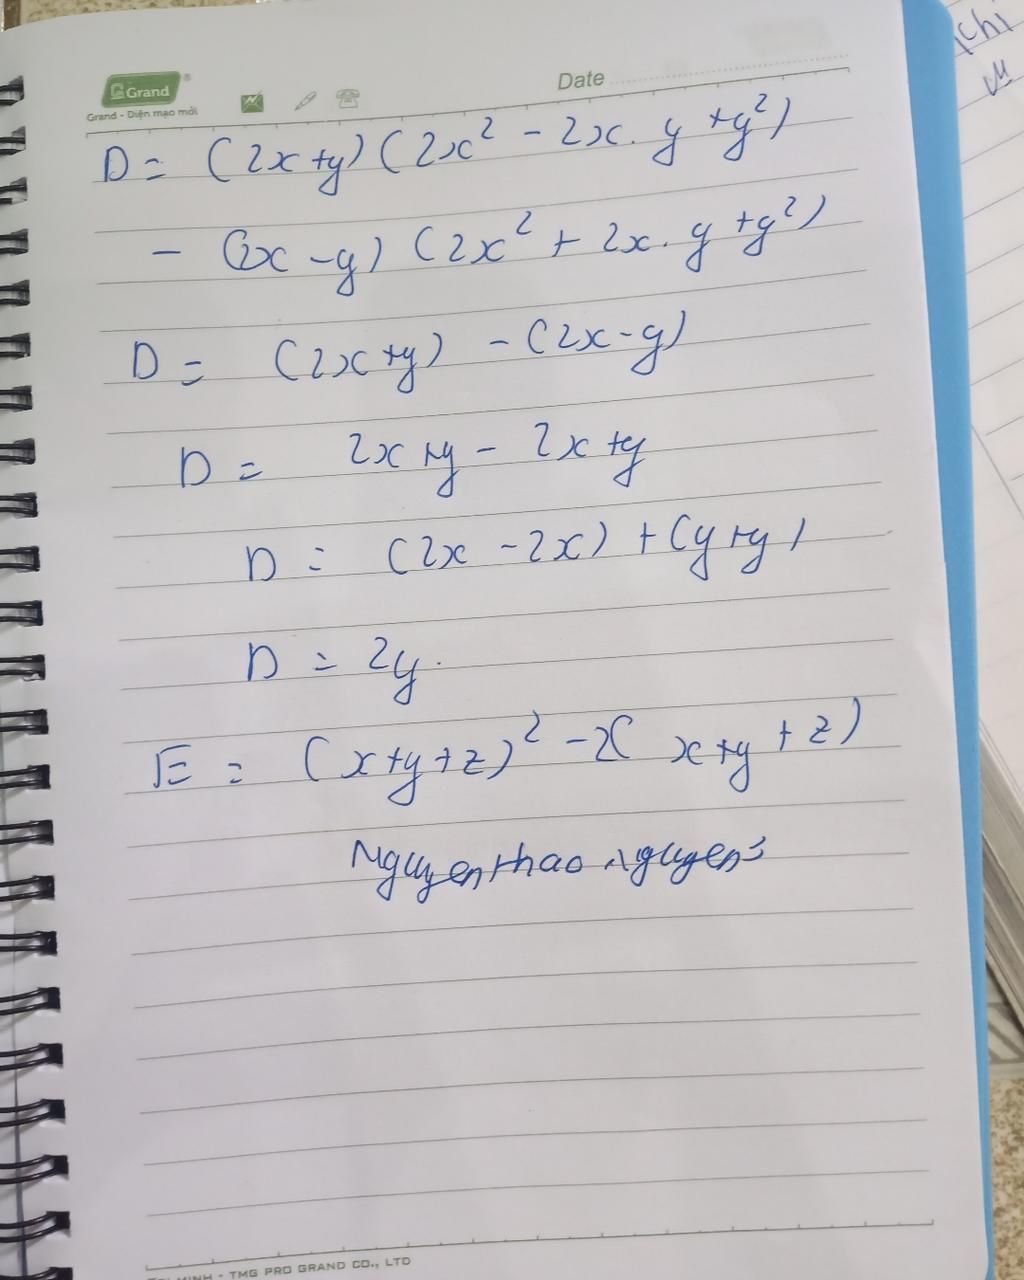 Grand®
Grand - Diện mạo mới
Date
D = (2x+y) (2x² - 2x.y +y²)
- (2x -y) (2x² + 2x.y +y²)
D = (2x+y) - (2x-y)
D = 2x+y - 2x+y
D = (2x -2x) + (y+y)
D = 2y.
E = (x+y+z)² -2( x+y +z)
Nguyen thao nguyen
MINH - TMG PRO GRAND CO., LTD
chi